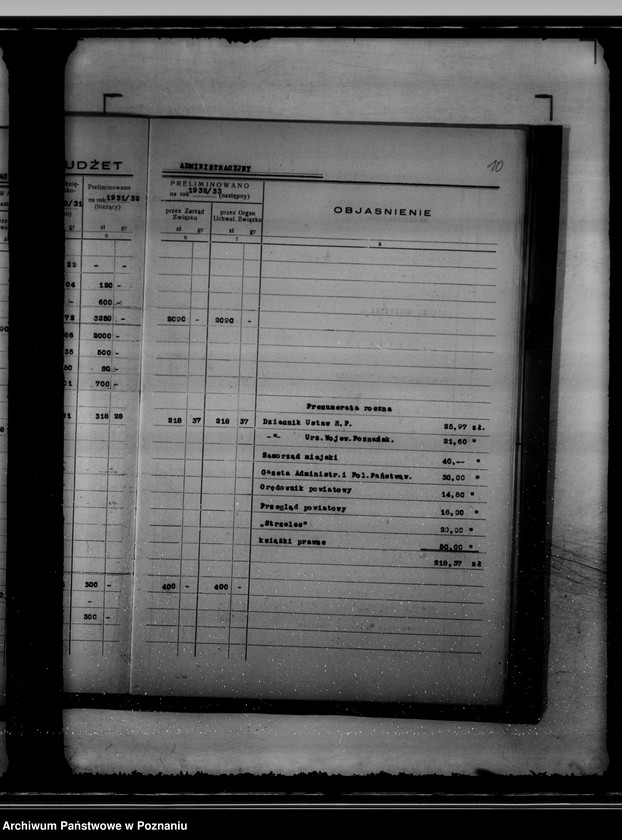 UDŻET
ADMINISTRACYJNY
10
Preliminowano
na rok 1931/32
(bieżący)
PRELIMINOWANO
na rok 1932/33 (następny)
OBJAŚNIENIE
przez Zarząd Związku
przez Organ Uchwał. Związku
zł gr
zł gr
zł gr
6 7 8
22 - -
04 120 -
- 600 -
72 3250 - 2090 - 2090 -
2000 -
35 500 -
700 -
Prenumerata roczna
318 28 218 37 218 37 Dziennik Ustaw R.P. 25,97 zł.
-"- Urz.Wojew.Poznańsk. 21,60 "
Samorząd miejski 40,-- "
Gazeta Administr.i Pol.Państw. 30,00 "
Orędownik powiatowy 14,80 "
Przegląd powiatowy 16,00 "
„Strzelec" 20,00 "
książki prawne 50,00 "
218,37 zł
300 - 400 - 400 -
-
300 -
Archiwum Państwowe w Poznaniu